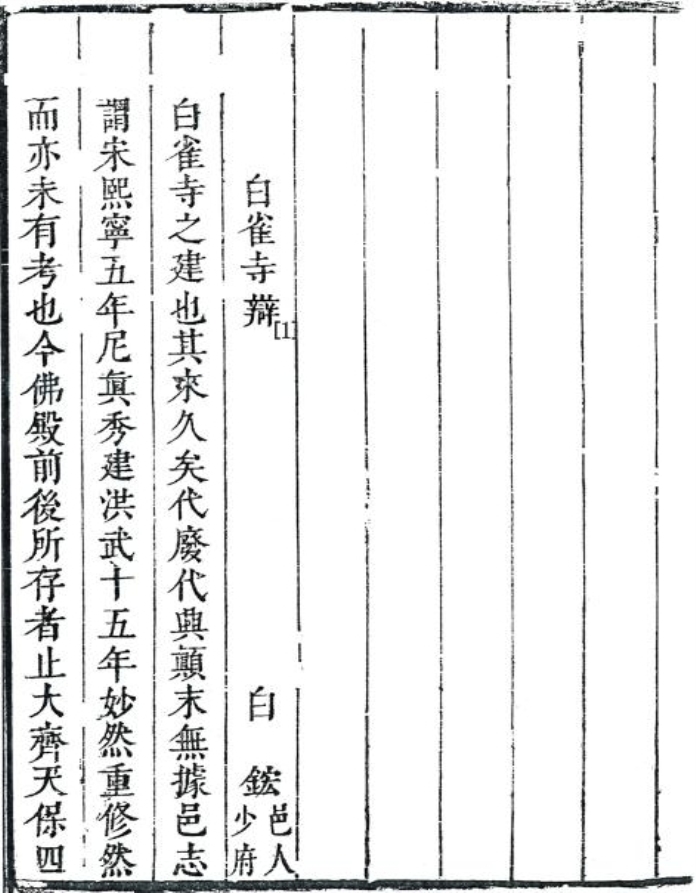 白雀寺辯[1] 白鋐邑人少府
白雀寺之建也其來久矣代廢代興顛末無據邑志
謂宋熙寧五年尼眞秀建洪武十五年妙然重修然
而亦未有考也今佛殿前後所存者止大齊天保四